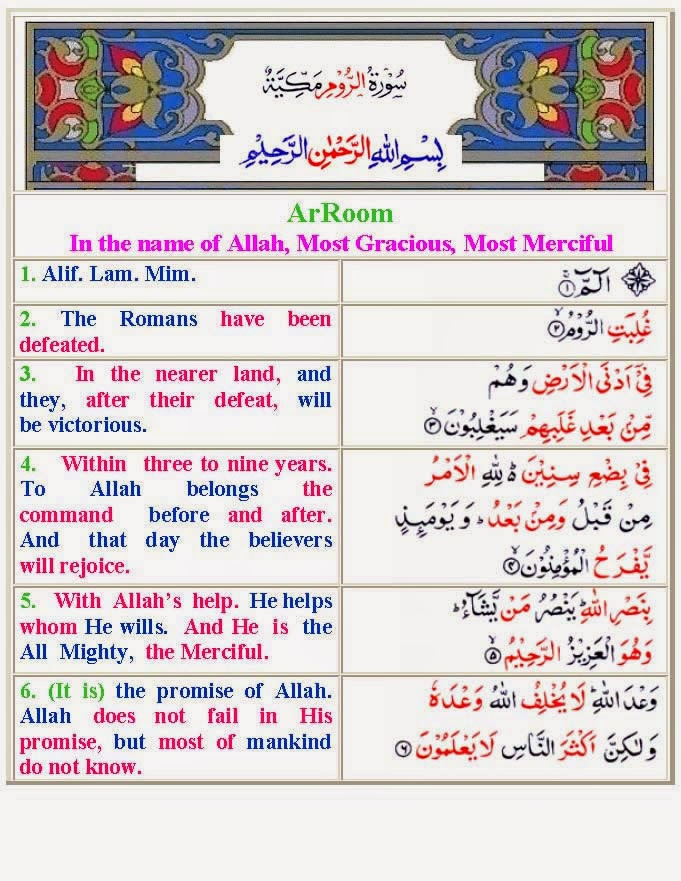 سُوْرَةُ الرُّوْمِ مَكِّيَّةٌ
بِسْمِ اللّٰهِ الرَّحْمٰنِ الرَّحِيْمِ
ArRoom
In the name of Allah, Most Gracious, Most Merciful
1. Alif. Lam. Mim.
الٓمّٓ ۚ﴿۱﴾
2. The Romans have been
defeated.
غُلِبَتِ الرُّوْمُ ۙ﴿۲﴾
3. In the nearer land, and
they, after their defeat, will
be victorious.
فِيْۤ اَدْنَى الْاَرْضِ وَهُمْ
مِّنْۢ بَعْدِ غَلَبِهِمْ سَيَغْلِبُوْنَ ۙ﴿۳﴾
4. Within three to nine years.
To Allah belongs the
command before and after.
And that day the believers
will rejoice.
فِيْ بِضْعِ سِنِيْنَ ۬ؕ لِلّٰهِ الْاَمْرُ
مِنْ قَبْلُ وَمِنْۢ بَعْدُ ؕ وَيَوْمَئِذٍ
يَّفْرَحُ الْمُؤْمِنُوْنَ ۙ﴿۴﴾
5. With Allah’s help. He helps
whom He wills. And He is the
All Mighty, the Merciful.
بِنَصْرِ اللّٰهِ ؕ يَنْصُرُ مَنْ يَّشَآءُ ؕ
وَهُوَ الْعَزِيْزُ الرَّحِيْمُ ۙ﴿۵﴾
6. (It is) the promise of Allah.
Allah does not fail in His
promise, but most of mankind
do not know.
وَعْدَ اللّٰهِ ؕ لَا يُخْلِفُ اللّٰهُ وَعْدَهٗ
وَلٰكِنَّ اَكْثَرَ النَّاسِ لَا يَعْلَمُوْنَ ﴿۶﴾